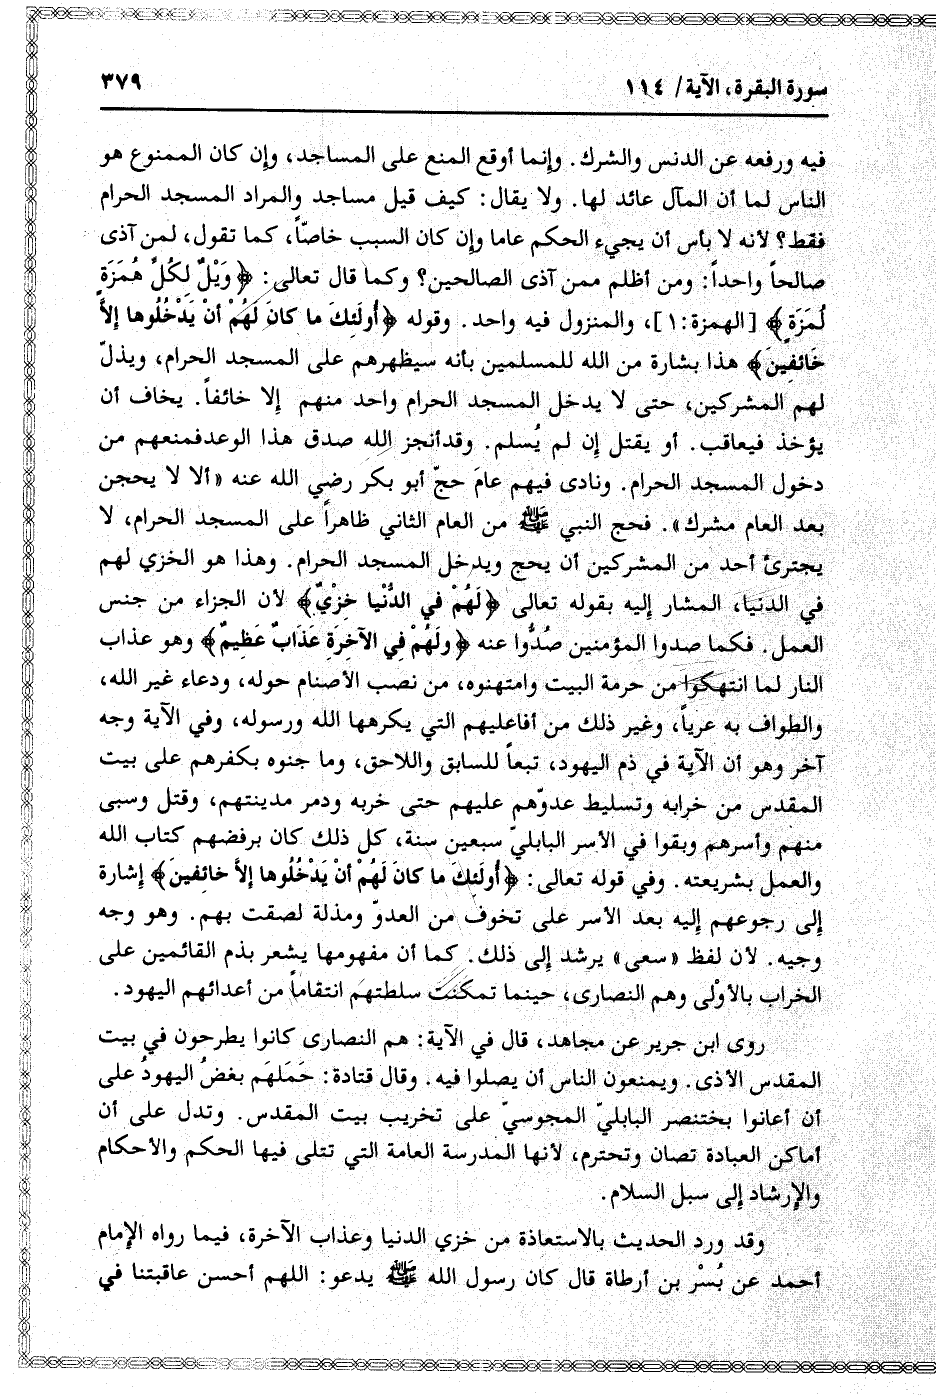 سورة البقرة، الآية/ ١١٤
٣٧٩
فيه ورفعه عن الدنس والشرك. وإنما أوقع المنع على المساجد، وإن كان الممنوع هو
الناس لما أن المآل عائد لها. ولا يقال: كيف قيل مساجد والمراد المسجد الحرام
فقط؟ لأنه لا بأس أن يجيء الحكم عاما وإن كان السبب خاصّاً، كما تقول، لمن آذى
صالحاً واحداً: ومن أظلم ممن آذى الصالحين؟ وكما قال تعالى: ﴿وَيْلٌ لِكُلِّ هُمَزَةٍ
لُمَزَةٍ﴾ [الهمزة:١]، والمنزول فيه واحد. وقوله ﴿أُولَئِكَ ما كانَ لَهُمْ أنْ يَدْخُلُوها إلاَّ
خَائفِينَ﴾ هذا بشارة من الله للمسلمين بأنه سيظهرهم على المسجد الحرام، ويذلّ
لهم المشركين، حتى لا يدخل المسجد الحرام واحد منهم إلا خائفاً. يخاف أن
يؤخذ فيعاقب. أو يقتل إن لم يُسلم. وقدأنجز الله صدق هذا الوعدفمنعهم من
دخول المسجد الحرام. ونادى فيهم عامَ حجّ أبو بكر رضي الله عنه «ألا لا يحجن
بعد العام مشرك». فحج النبي ﷺ من العام الثاني ظاهراً على المسجد الحرام، لا
يجترئ أحد من المشركين أن يحج ويدخل المسجد الحرام. وهذا هو الخزي لهم
في الدنيا، المشار إليه بقوله تعالى ﴿لَهُمْ في الدُّنْيا خِزْيٌ﴾ لأن الجزاء من جنس
العمل. فكما صدوا المؤمنين صُدُّوا عنه ﴿ولَهُمْ فِي الآخِرةِ عَذَابٌ عَظِيمٌ﴾ وهو عذاب
النار لما انتهكوا من حرمة البيت وامتهنوه، من نصب الأصنام حوله، ودعاء غير الله،
والطواف به عرياً، وغير ذلك من أفاعليهم التي يكرهها الله ورسوله، وفي الآية وجه
آخر وهو أن الآية في ذم اليهود، تبعاً للسابق واللاحق، وما جنوه بكفرهم على بيت
المقدس من خرابه وتسليط عدوّهم عليهم حتى خربه ودمر مدينتهم، وقتل وسبى
منهم وأسرهم وبقوا في الأسر البابليّ سبعين سنة، كل ذلك كان برفضهم كتاب الله
والعمل بشريعته. وفي قوله تعالى: ﴿أُولَئِكَ ما كانَ لَهُمْ أنْ يَدْخُلُوها إلاَّ خائِفينَ﴾ إشارة
إلى رجوعهم إليه بعد الأسر على تخوف من العدوّ ومذلة لصقت بهم. وهو وجه
وجيه. لأن لفظ «سعى» يرشد إلى ذلك. كما أن مفهومها يشعر بذم القائمين على
الخراب بالأوْلى وهم النصارى، حينما تمكنت سلطتهم انتقاماً من أعدائهم اليهود.
روى ابن جرير عن مجاهد، قال في الآية: هم النصارى كانوا يطرحون في بيت
المقدس الأذى. ويمنعون الناس أن يصلوا فيه. وقال قتادة: حَمَلَهم بغضُ اليهودُ على
أن أعانوا بختنصر البابليّ المجوسيّ على تخريب بيت المقدس. وتدل على أن
أماكن العبادة تصان وتحترم، لأنها المدرسة العامة التي تتلى فيها الحكم والأحكام
والإرشاد إلى سبل السلام.
وقد ورد الحديث بالاستعاذة من خزي الدنيا وعذاب الآخرة، فيما رواه الإمام
أحمد عن بُسْر بن أرطاة قال كان رسول الله ﷺ يدعو: اللهم أحسن عاقبتنا في